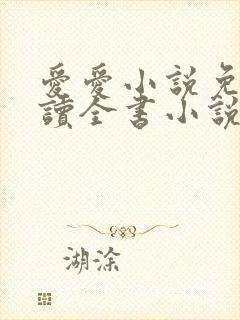 愛愛小說免
讀全書小說
湖涂